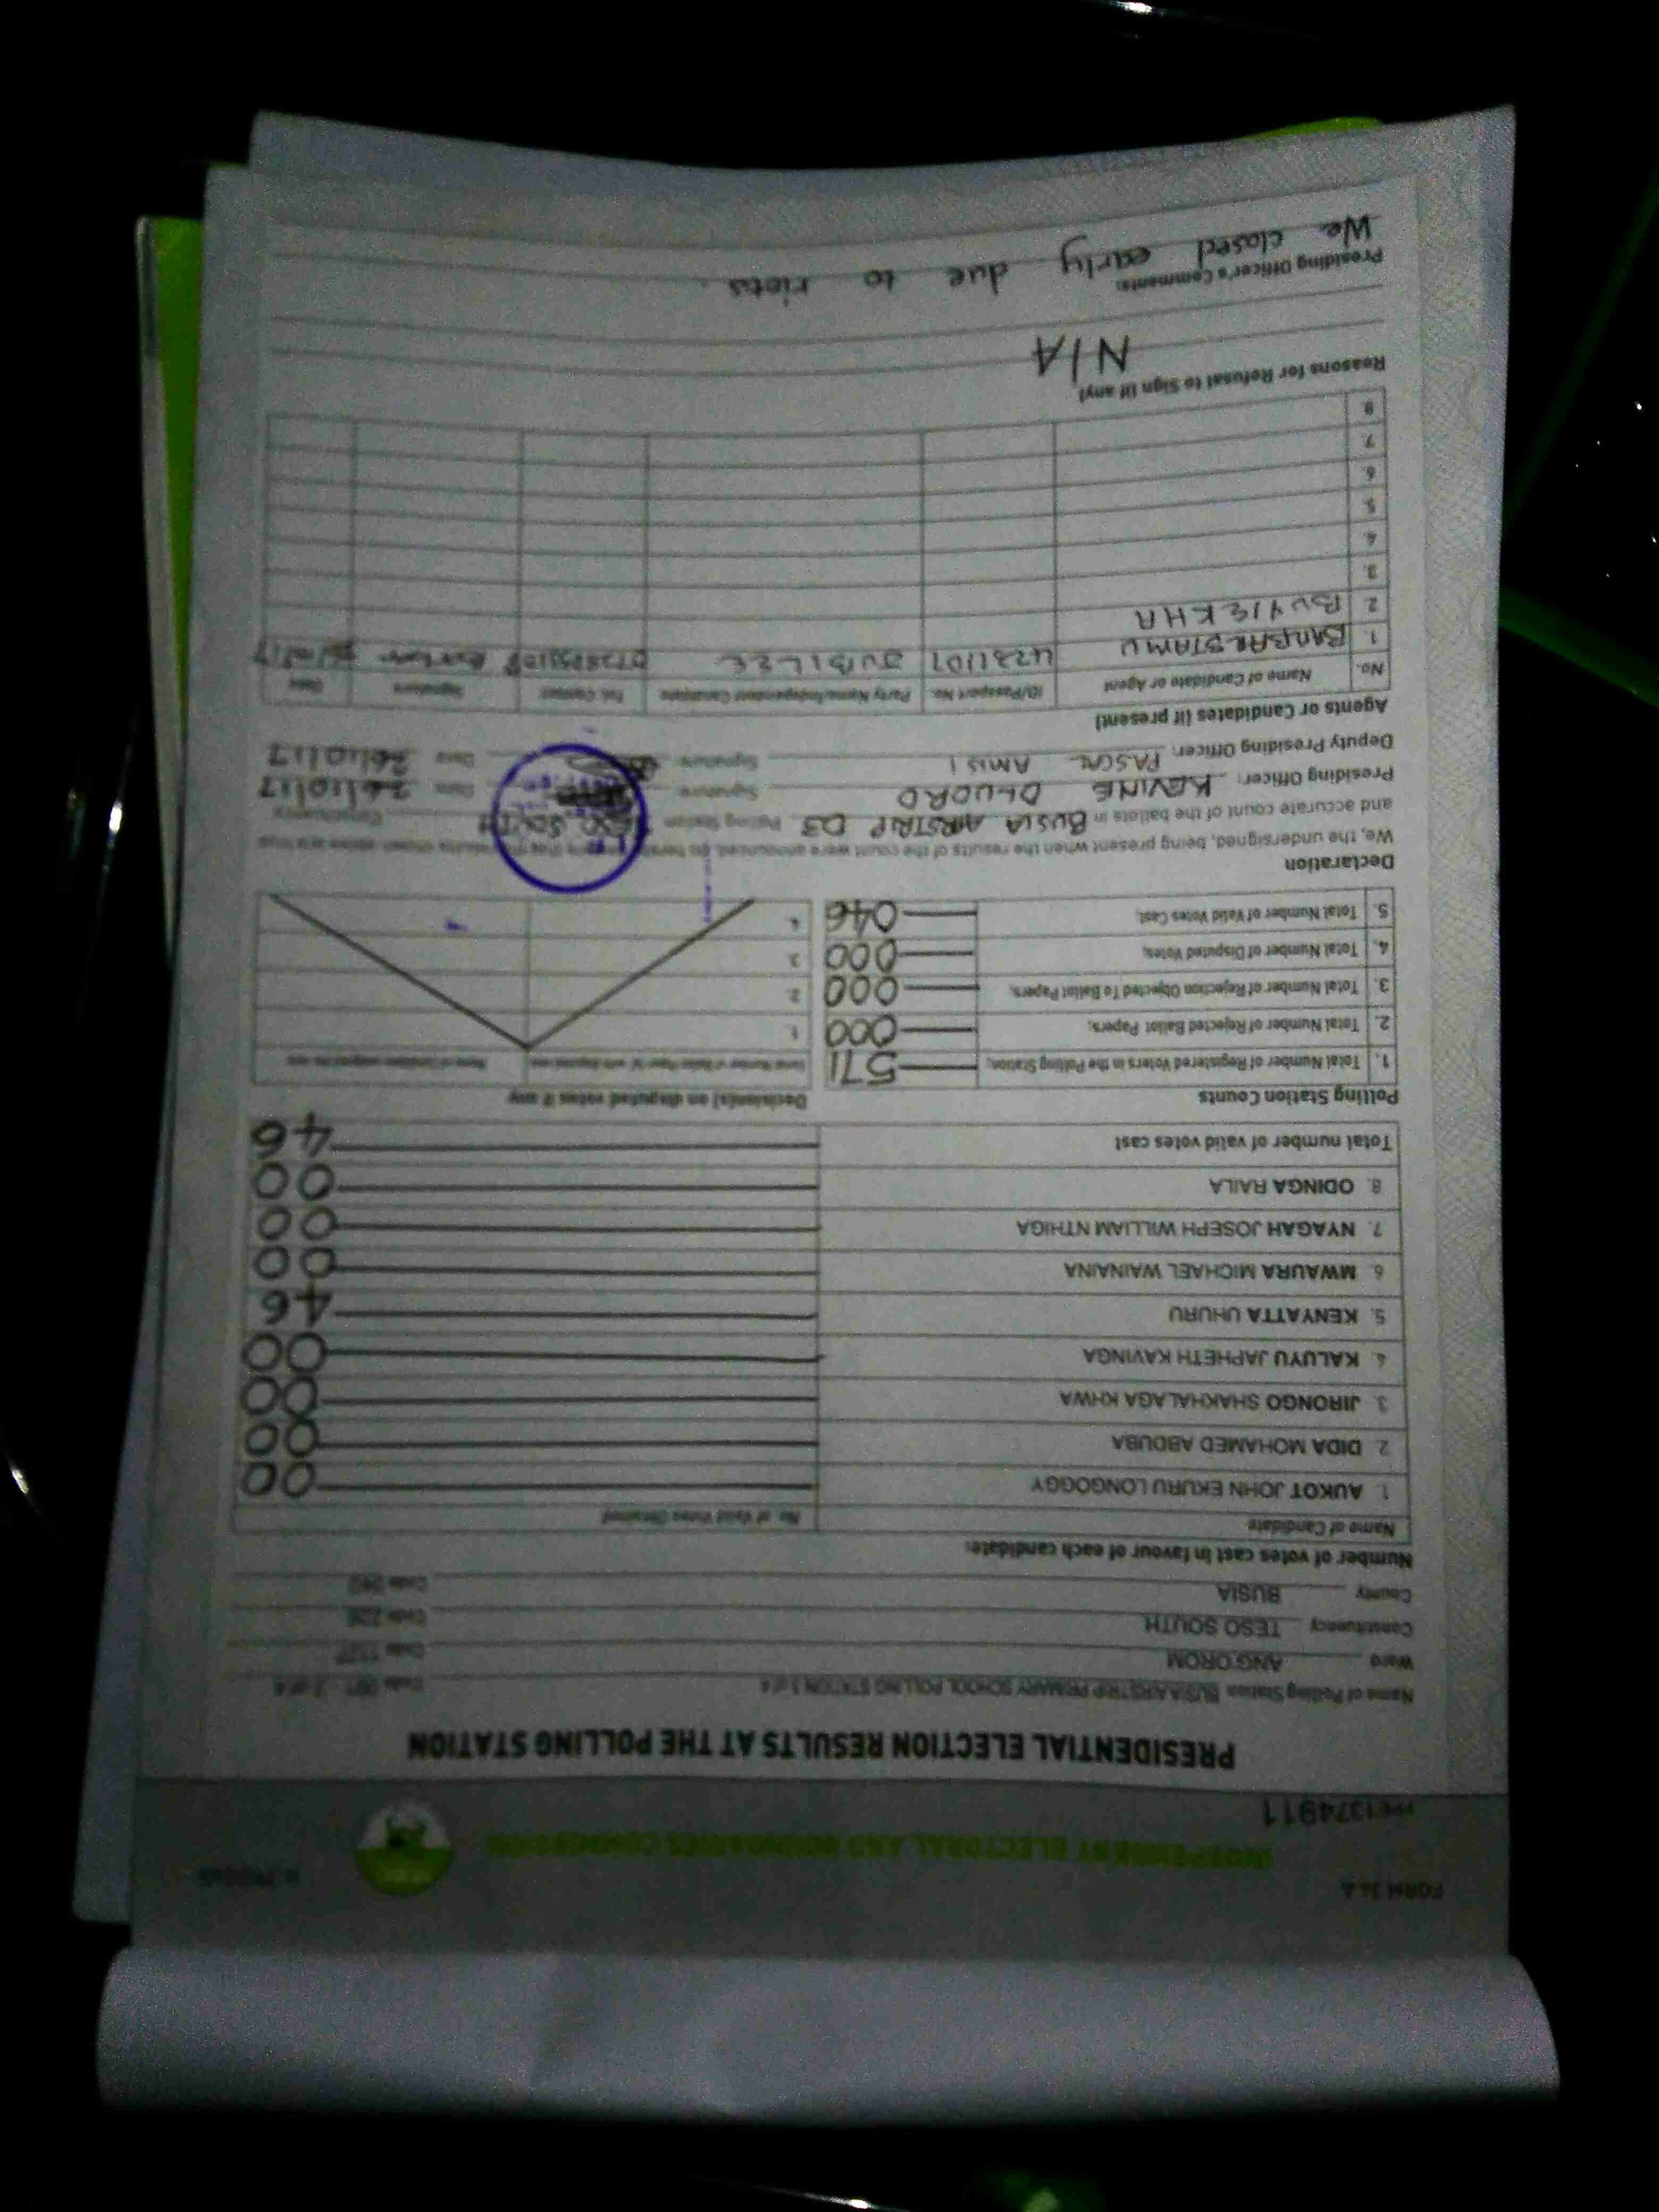 FORM 34 A
INDEPENDENT ELECTORAL AND BOUNDARIES COMMISSION
PRE1374911
PRESIDENTIAL ELECTION RESULTS AT THE POLLING STATION
Name of Polling Station BUSIA AIRSTRIP PRIMARY SCHOOL POLLING STATION 3 of 4 Code 091 - 3 of 4
Ward ANG'OROM Code
Constituency TESO SOUTH Code
County BUSIA Code
Number of votes cast in favour of each candidate:
Name of Candidate No. of Valid Votes Obtained
1. AUKOT JOHN EKURU LONGOGGY 00
2. DIDA MOHAMED ABDUBA 00
3. JIRONGO SHAKHALAGA KHWA 00
4. KALUYU JAPHETH KAVINGA 00
5. KENYATTA UHURU 46
6. MWAURA MICHAEL WAINAINA 00
7. NYAGAH JOSEPH WILLIAM NTHIGA 00
8. ODINGA RAILA 00
Total number of valid votes cast 46
Polling Station Counts
1. Total Number of Registered Voters in the Polling Station; 571
2. Total Number of Rejected Ballot Papers; 000
3. Total Number of Rejection Objected To Ballot Papers; 000
4. Total Number of Disputed Votes; 000
5. Total Number of Valid Votes Cast; 046
Decision(s) on disputed votes if any
1.
2.
3.
4.
Declaration
We, the undersigned, being present when the results of the count were announced, do hereby declare that the results shown above are true
and accurate count of the ballots in BUSIA AIRSTRIP 03 Polling Station TESO SOUTH Constituency
Presiding Officer: KEVINE OLUORO Signature Date 26/10/17
Deputy Presiding Officer: PASCAL AMISI Signature Date 26/10/17
Agents or Candidates (if present)
No. Name of Candidate or Agent ID/Passport No. Party Name/Independent Candidate Tel. Contact Signature Date
1. JUBILEE
2 BUYIEKHA
3.
4.
5
6
7.
8
Reasons for Refusal to Sign (if any)
N/A
Presiding Officer's Comments:
We closed early due to riots.